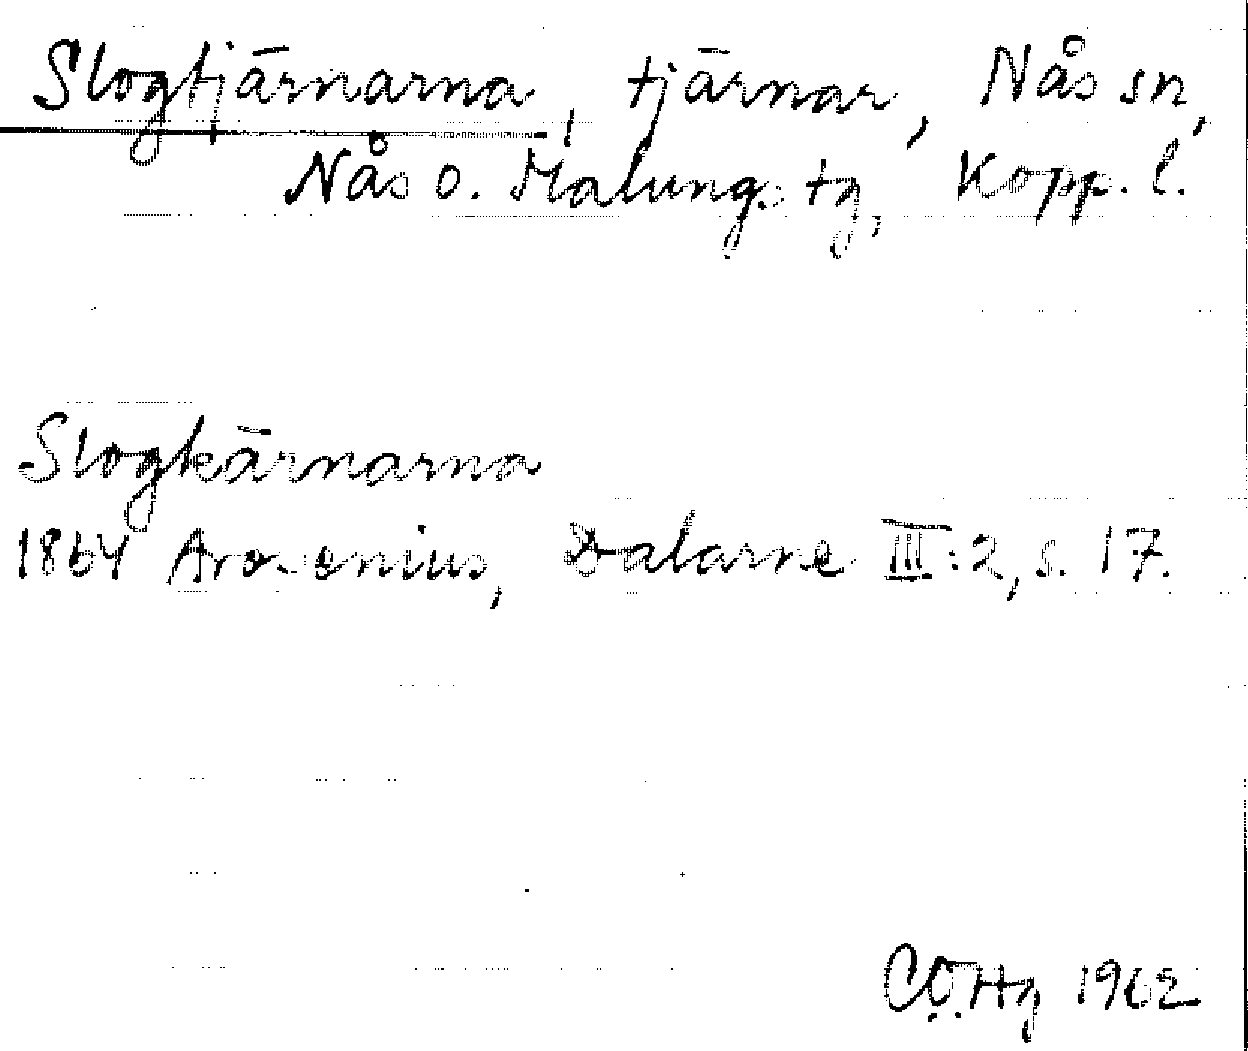 Slogtjärnarna, tjärnar, Nås sn,
Nås o. Malungs tg, Kopp. l.
Slogkärnarna
1864 Arosenius, Dalarne III:2, s. 17.
CÖHg 1962